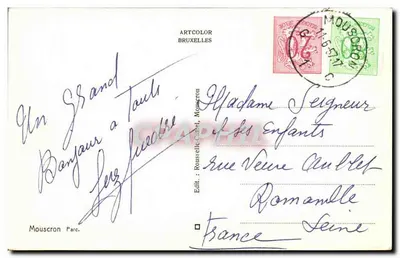 ARTCOLOR
BRUXELLES
MOUSCRON
Un Grand
Bonjour a Touts
Madame Seigneur
et ses Enfants
rue Veuve
Romanville
Seine
France
Mouscron Parc.